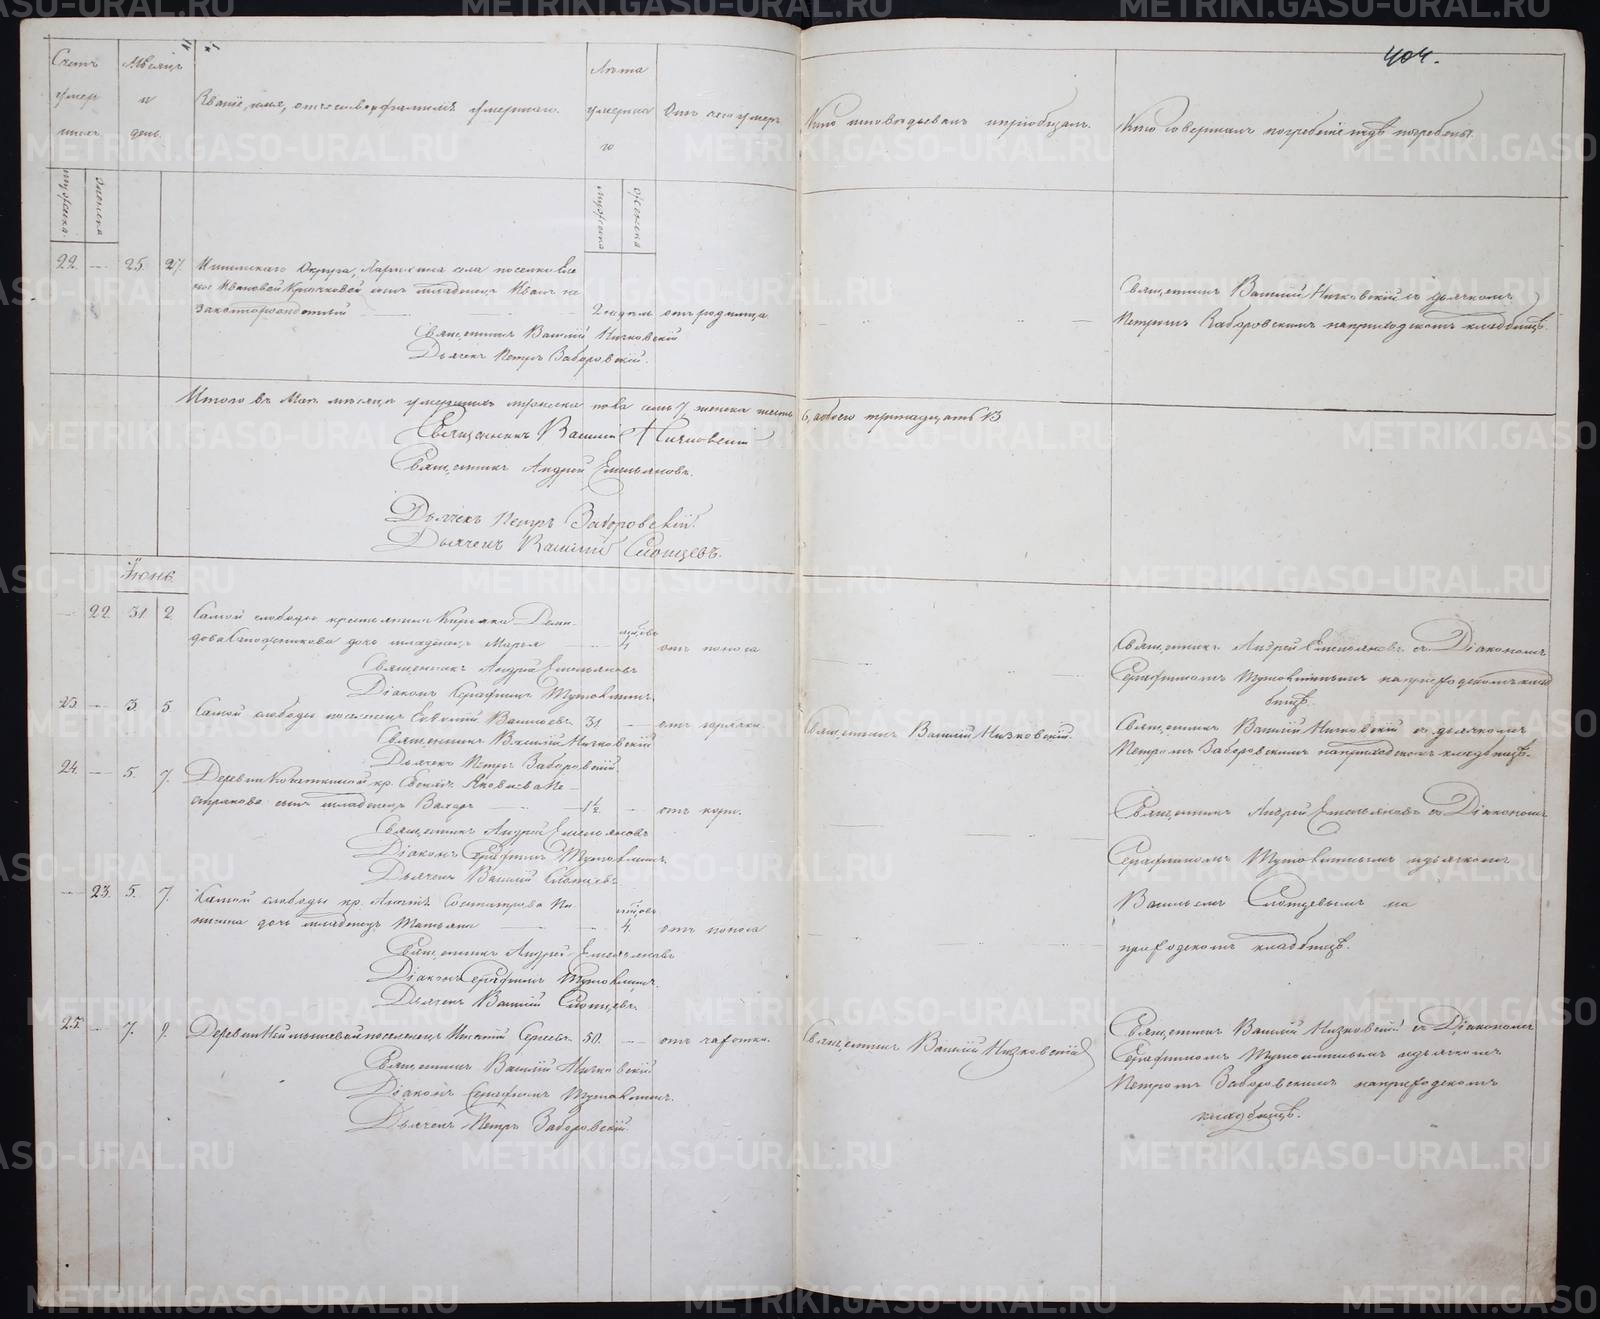 404.
Счетъ умер шихъ.
Мѣсяцъ и день.
Званіе, имя, отчество и фамилія умершаго.
Лѣта умершаго
Отъ чего умеръ
Кто исповѣдывалъ и пріобщалъ.
Кто совершалъ погребеніе и гдѣ погребены.
мужска
женска
мужска
женска
22. — 25. 27. Ишимскаго Округа, села поселковы
Ивановой Крючковой сынъ младенецъ Иванъ не
законнорожденный 2 недѣль отъ родимца
Священникъ Василій Низковскій
Дьячекъ Петръ Заборовскій.
Священникъ Василій Низковскій съ дьячкомъ
Петромъ Заборовскимъ на приходскомъ кладбищѣ.
Итого въ Маѣ мѣсяцѣ умершихъ мужеска пола семь 7, женска шесть 6, обоего тринадцать 13
Священникъ Василій Низковскій
Священникъ Андрей Емельяновъ.
Дьячекъ Петръ Заборовскій.
Дьячекъ Василій Слопцевъ.
Іюнь.
— 22. 31. 2. Самой слободы крестьянина Кирьяка Деми-
дова дочь младенецъ Марья 4 отъ поноса
Священникъ Андрей Емельяновъ
Діаконъ Серафимъ Тутолминъ.
Священникъ Андрей Емельяновъ съ Діакономъ
Серафимомъ Тутолминымъ на приходскомъ клад
бищѣ.
23. — 3. 5. Самой слободы поселенецъ Евфимій Васильевъ 31. — отъ горячки.
Священникъ Василій Низковскій
Дьячекъ Петръ Заборовскій.
Священникъ Василій Низковскій.
Священникъ Василій Низковскій съ дьячкомъ
Петромъ Заборовскимъ на приходскомъ кладбищѣ.
24. — 5. 7. Деревни кр. Яковлева
сынъ младенецъ 1½ — отъ кори.
Священникъ Андрей Емельяновъ
Діаконъ Серафимъ Тутолминъ.
Дьячекъ Василій Слопцевъ
Священникъ Андрей Емельяновъ съ Діакономъ
Серафимомъ Тутолминымъ и дьячкомъ
Василіемъ Слопцевымъ на
приходскомъ кладбищѣ.
— 23. 5. 7. Самой слободы кр.
дочь младенецъ Татьяна 4. отъ поноса
Священникъ Андрей Емельяновъ
Діаконъ Серафимъ Тутолминъ.
Дьячекъ Василій Слопцевъ.
25. — 7. 9. Деревни поселенецъ Сергѣевъ 50. — отъ чахотки.
Священникъ Василій Низковскій
Діаконъ Серафимъ Тутолминъ.
Дьячекъ Петръ Заборовскій.
Священникъ Василій Низковскій
Священникъ Василій Низковскій съ Діакономъ
Серафимомъ Тутолминымъ и дьячкомъ
Петромъ Заборовскимъ на приходскомъ
кладбищѣ.
METRIKI.GASO-URAL.RU